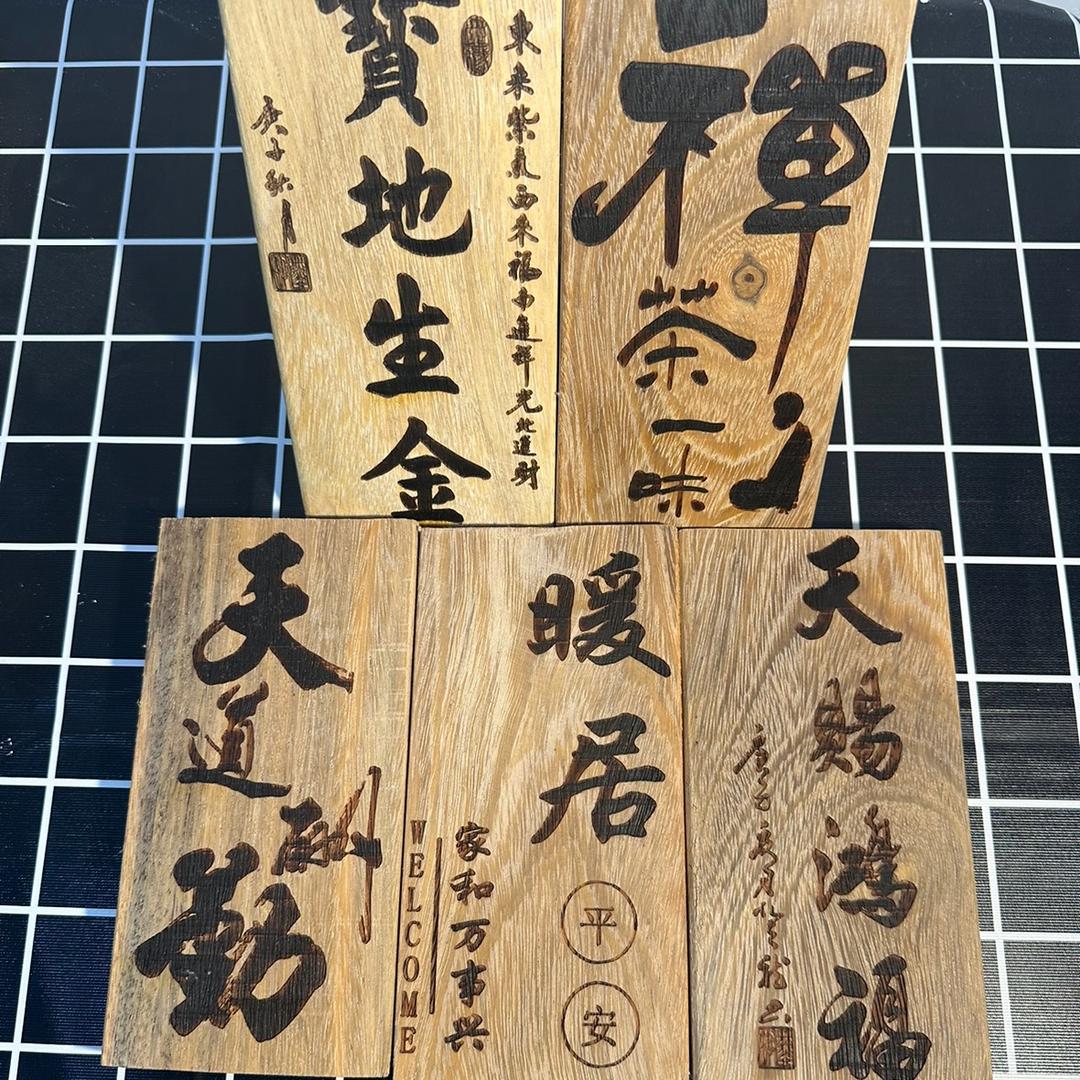 寶地生金
東来紫氣西来福南進祥光北進財
庚子秋月
禪
茶一味
天道酬勤
暖居
平安
家和万事兴
WELCOME
天赐鴻福